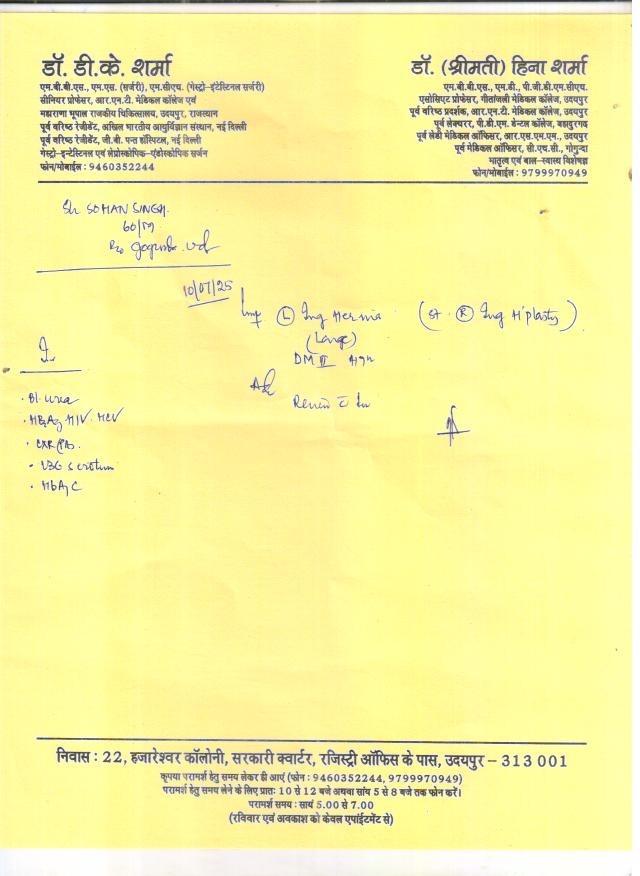 डॉ. डी.के. शर्मा
एम.बी.बी.एस., एम.एस. (सर्जरी), एम.सीएच. (गेस्ट्रो-इंटेस्टिनल सर्जरी)
सीनियर प्रोफेसर, आर.एन.टी. मेडिकल कॉलेज एवं
महाराणा भूपाल राजकीय चिकित्सालय, उदयपुर, राजस्थान
पूर्व वरिष्ठ रेजीडेंट, अखिल भारतीय आयुर्विज्ञान संस्थान, नई दिल्ली
पूर्व वरिष्ठ रेजीडेंट, जी.बी. पन्त हॉस्पिटल, नई दिल्ली
गेस्ट्रो-इन्टेस्टिनल एवं लेप्रोस्कोपिक-एंडोस्कोपिक सर्जन
फोन/मोबाईल : 9460352244
डॉ. (श्रीमती) हिना शर्मा
एम.बी.बी.एस., एम.डी., पी.जी.डी.एम.सीएच.
एसोसिएट प्रोफेसर, गीतांजली मेडिकल कॉलेज, उदयपुर
पूर्व वरिष्ठ प्रदर्शक, आर.एन.टी. मेडिकल कॉलेज, उदयपुर
पूर्व लेक्चरर, पी.डी.एम. डेन्टल कॉलेज, बहादुरगढ़
पूर्व लेडी मेडिकल ऑफिसर, आर.एस.एम.एम., उदयपुर
पूर्व मेडिकल ऑफिसर, सी.एच.सी., गोगुन्दा
मातृत्व एवं बाल-स्वास्थ्य विशेषज्ञ
फोन/मोबाईल : 9799970949
Sh SOHAN SINGH.
60/M
10/07/25
Imp (L) Ing Hernia (st. (R) Ing H'plasty)
(Large)
DM II Htn
Adv
Review c̄ Inv
· Bl. urea
· HBsAg HIV. HCV
· CXR/PA.
· USG scrotum
· HbA1C
निवास : 22, हजारेश्वर कॉलोनी, सरकारी क्वार्टर, रजिस्ट्री ऑफिस के पास, उदयपुर – 313 001
कृपया परामर्श हेतु समय लेकर ही आएं (फोन : 9460352244, 9799970949)
परामर्श हेतु समय लेने के लिए प्रातः 10 से 12 बजे अथवा सांय 5 से 8 बजे तक फोन करें।
परामर्श समय : सायं 5.00 से 7.00
(रविवार एवं अवकाश को केवल एपाईंटमेंट से)